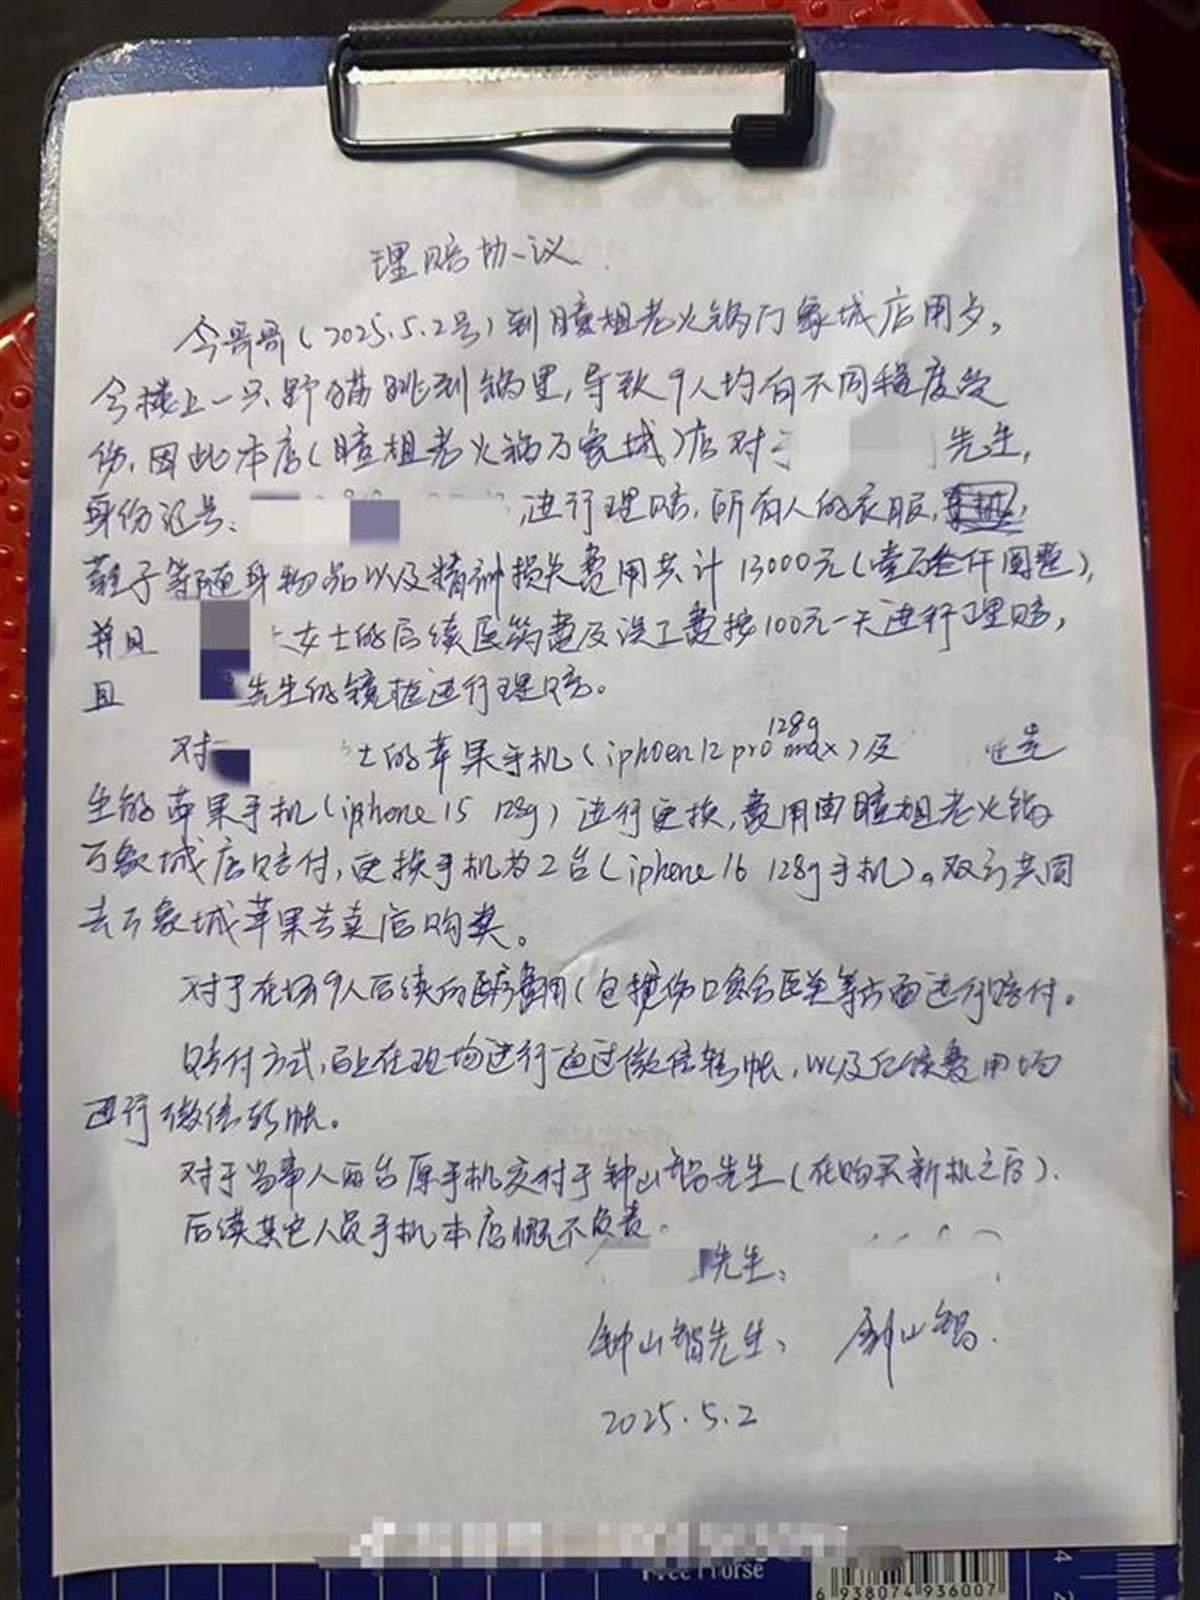 理赔协议
今哥哥(2025.5.2号)到瞳姐老火锅万象城店用夕,
今楼上一只野猫跳到锅里,导致9人均有不同程度受
伤,因此本店(瞳姐老火锅万象城)店对于 先生,
身份证号: ,进行理赔,所有人的衣服,
鞋子等随身物品以及精神损失费用共计13000元(壹万叁仟圆整),
并且 女士的后续医药费及误工费按100元一天进行理赔,
且 先生的镜框进行理赔。
对 士的苹果手机(iphoen 12 pro max 128g)及 先
生的苹果手机(iphone 15 128g)进行更换,费用由瞳姐老火锅
万象城店赔付,更换手机为2台(iphone 16 128g手机)。双方共同
去万象城苹果专卖店购买。
对于在场9人后续的医疗费用(包括伤口愈合医美等方面进行赔付。
赔付方式,马上在现场进行通过微信转帐,以及后续费用均
进行微信转帐。
对于当事人两台原手机交付于钟山锅先生(在购买新机之后).
后续其它人员手机本店概不负责。
先生:
钟山锅先生: 钟山锅.
2025.5.2
Free Horse
6 938074 936007